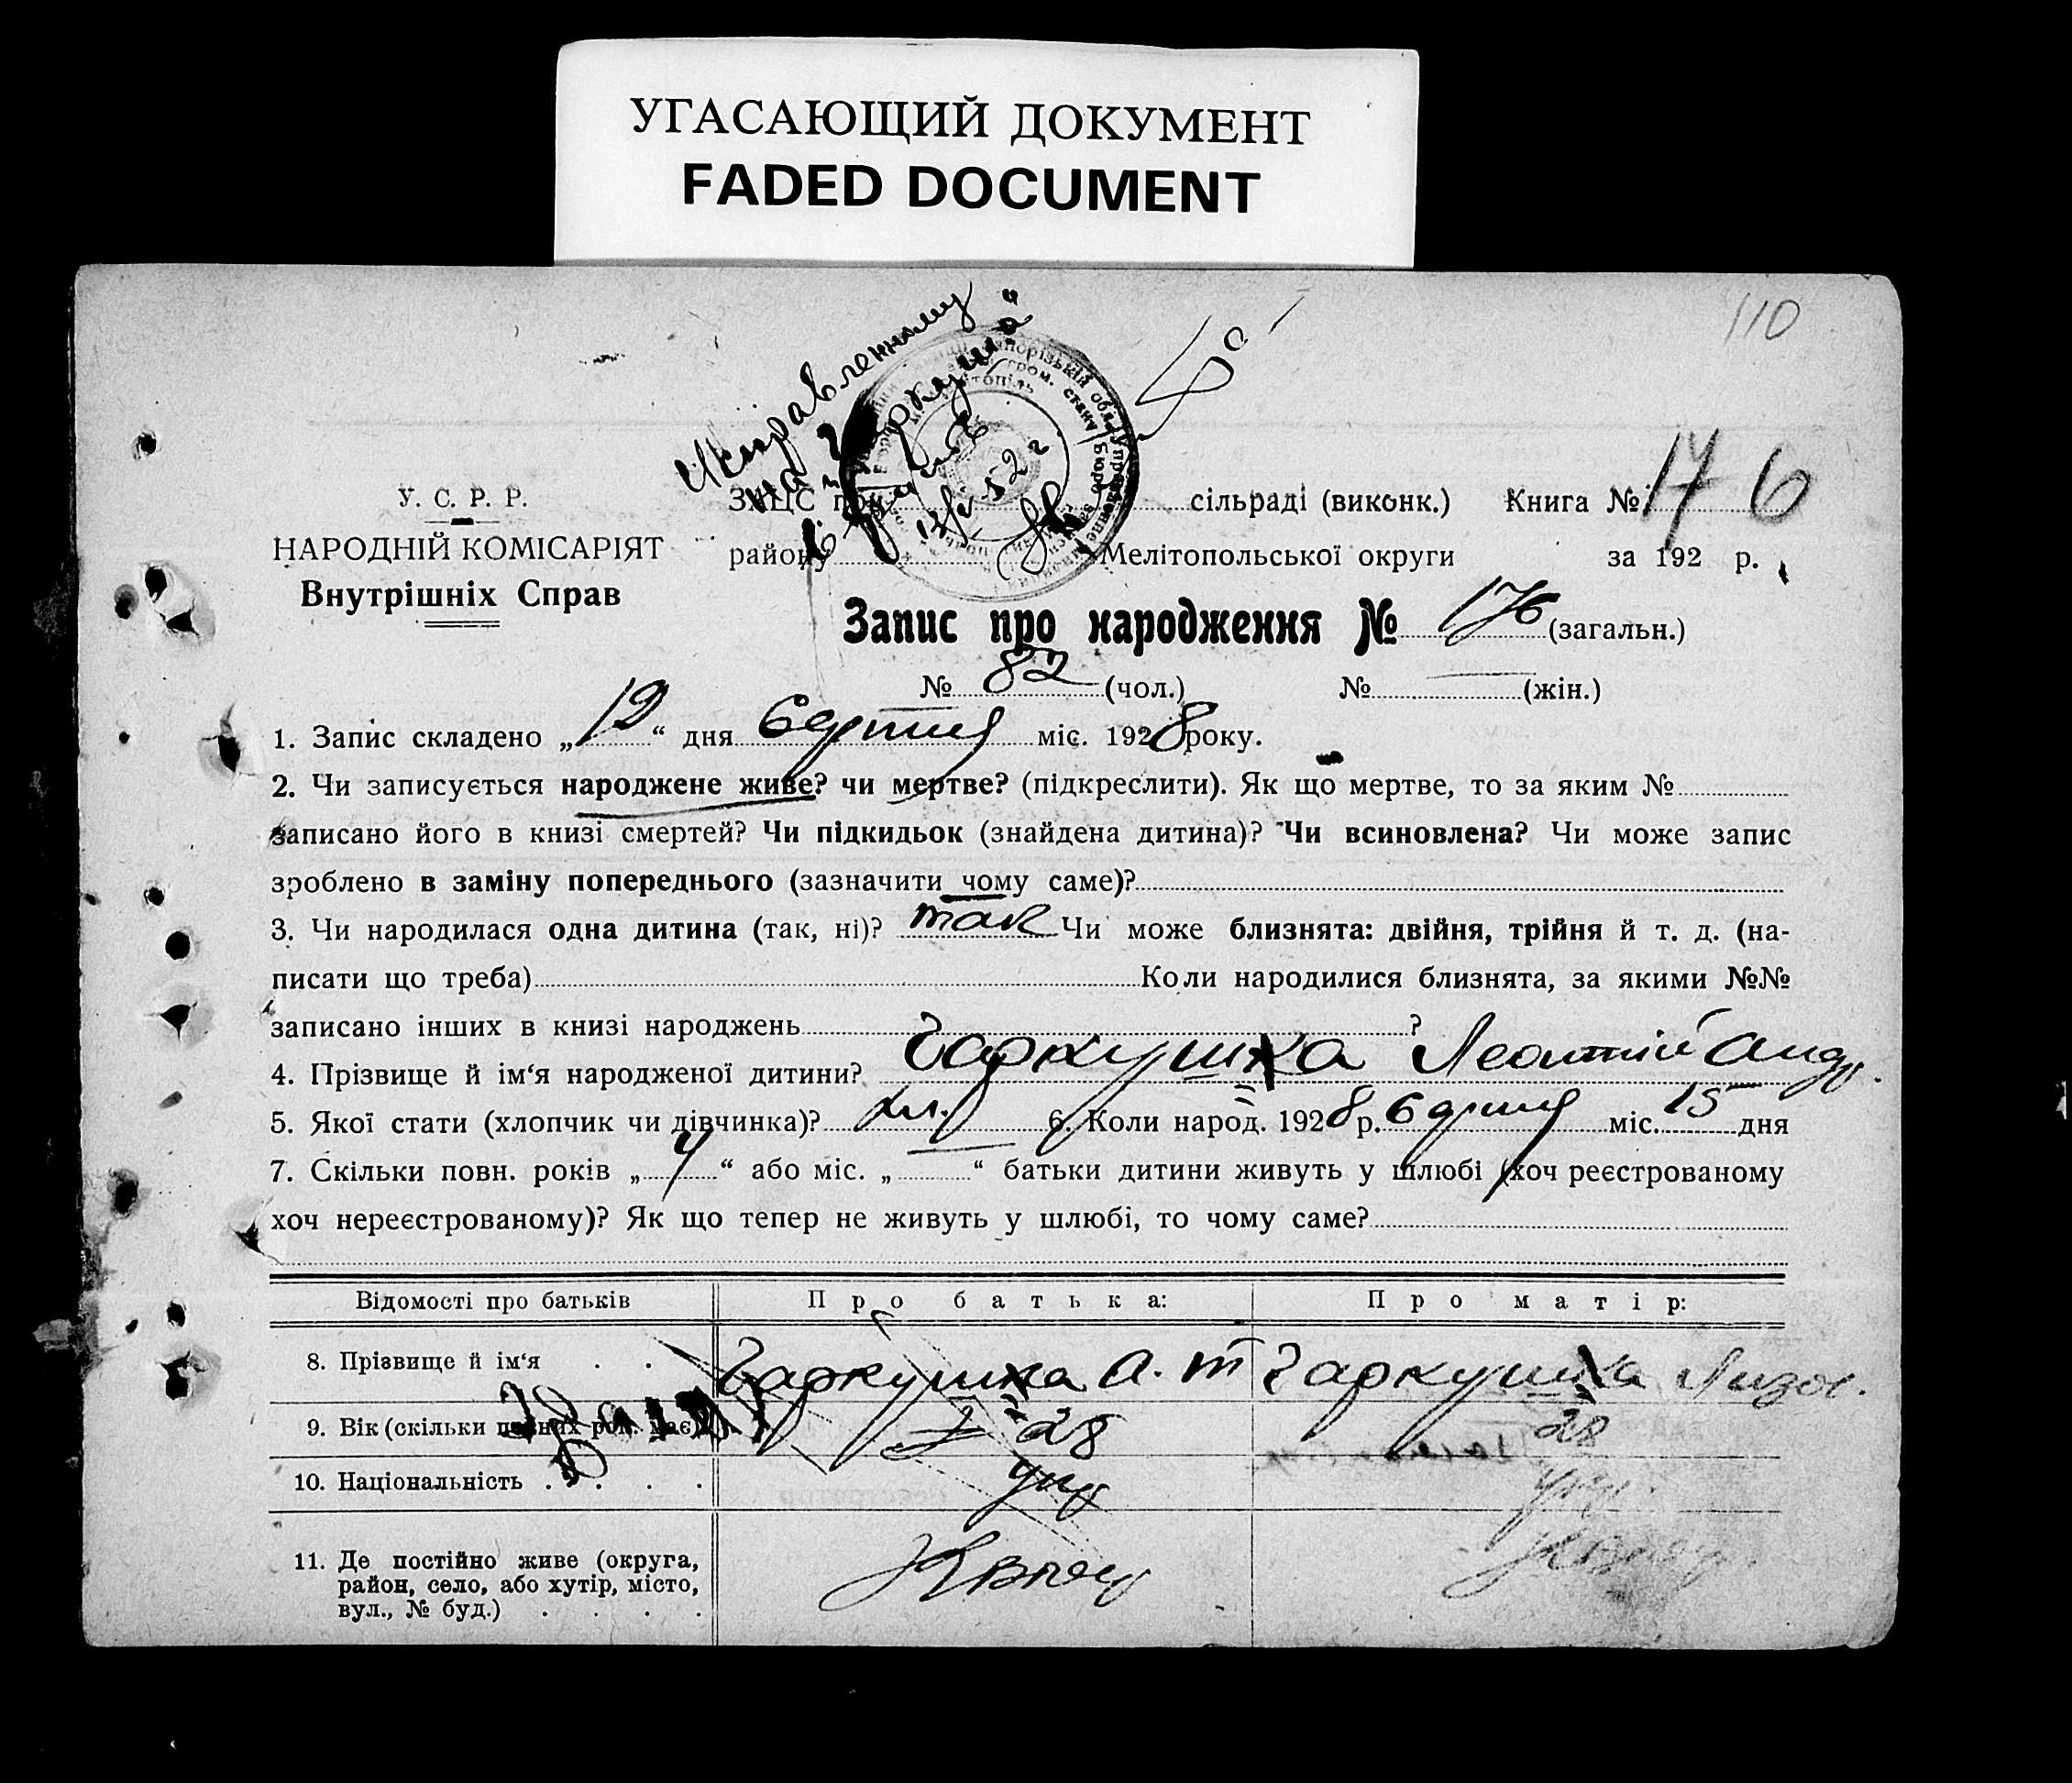 УГАСАЮЩИЙ ДОКУМЕНТ
FADED DOCUMENT
110
Исправленному
на "Гаркуша"
верить
У. С. Р. Р.
НАРОДНІЙ КОМІСАРІЯТ
Внутрішніх Справ
ЗАЦС при сільраді (виконк.) Книга № 176
району Мелітопольської округи за 192 р.
Запис про народження № 176 (загальн.)
№ 82 (чол.) № — (жін.)
1. Запис складено „19“ дня Серпня міс. 1928 року.
2. Чи записується народжене живе? чи мертве? (підкреслити). Як що мертве, то за яким №
записано його в книзі смертей? Чи підкидьок (знайдена дитина)? Чи всиновлена? Чи може запис
зроблено в заміну попереднього (зазначити чому саме)?
3. Чи народилася одна дитина (так, ні)? так Чи може близнята: двійня, трійня й т. д. (на-
писати що треба) Коли народилися близнята, за якими №№
записано інших в книзі народжень ?
4. Прізвище й ім‘я народженої дитини? Гаркушка Леонтій Андр.
5. Якої стати (хлопчик чи дівчинка)? хл. 6. Коли народ. 1928 р. Серпня міс. 15 дня
7. Скільки повн. років „4“ або міс. „ “ батьки дитини живуть у шлюбі (хоч реєстрованому
хоч нереєстрованому)? Як що тепер не живуть у шлюбі, то чому саме?
Відомості про батьків Про батька: Про матір:
8. Прізвище й ім‘я . . Гаркушка А. Т Гаркушка
9. Вік (скільки повних рок. має) 28 28
10. Національність . . . . укр укр
11. Де постійно живе (округа,
район, село, або хутір, місто,
вул., № буд.) . . . .